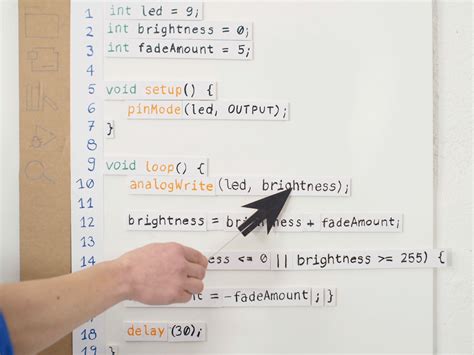 1 int led = 9;
2 int brightness = 0;
3 int fadeAmount = 5;
4
5 void setup() {
6 pinMode (led, OUTPUT);
7 }
8
9 void loop() {
10 analogWrite (led, brightness);
12 brightness = brightness + fadeAmount;
14 ess <= 0 || brightness >= 255) {
= -fadeAmount ; }
18 delay (30);
19 }